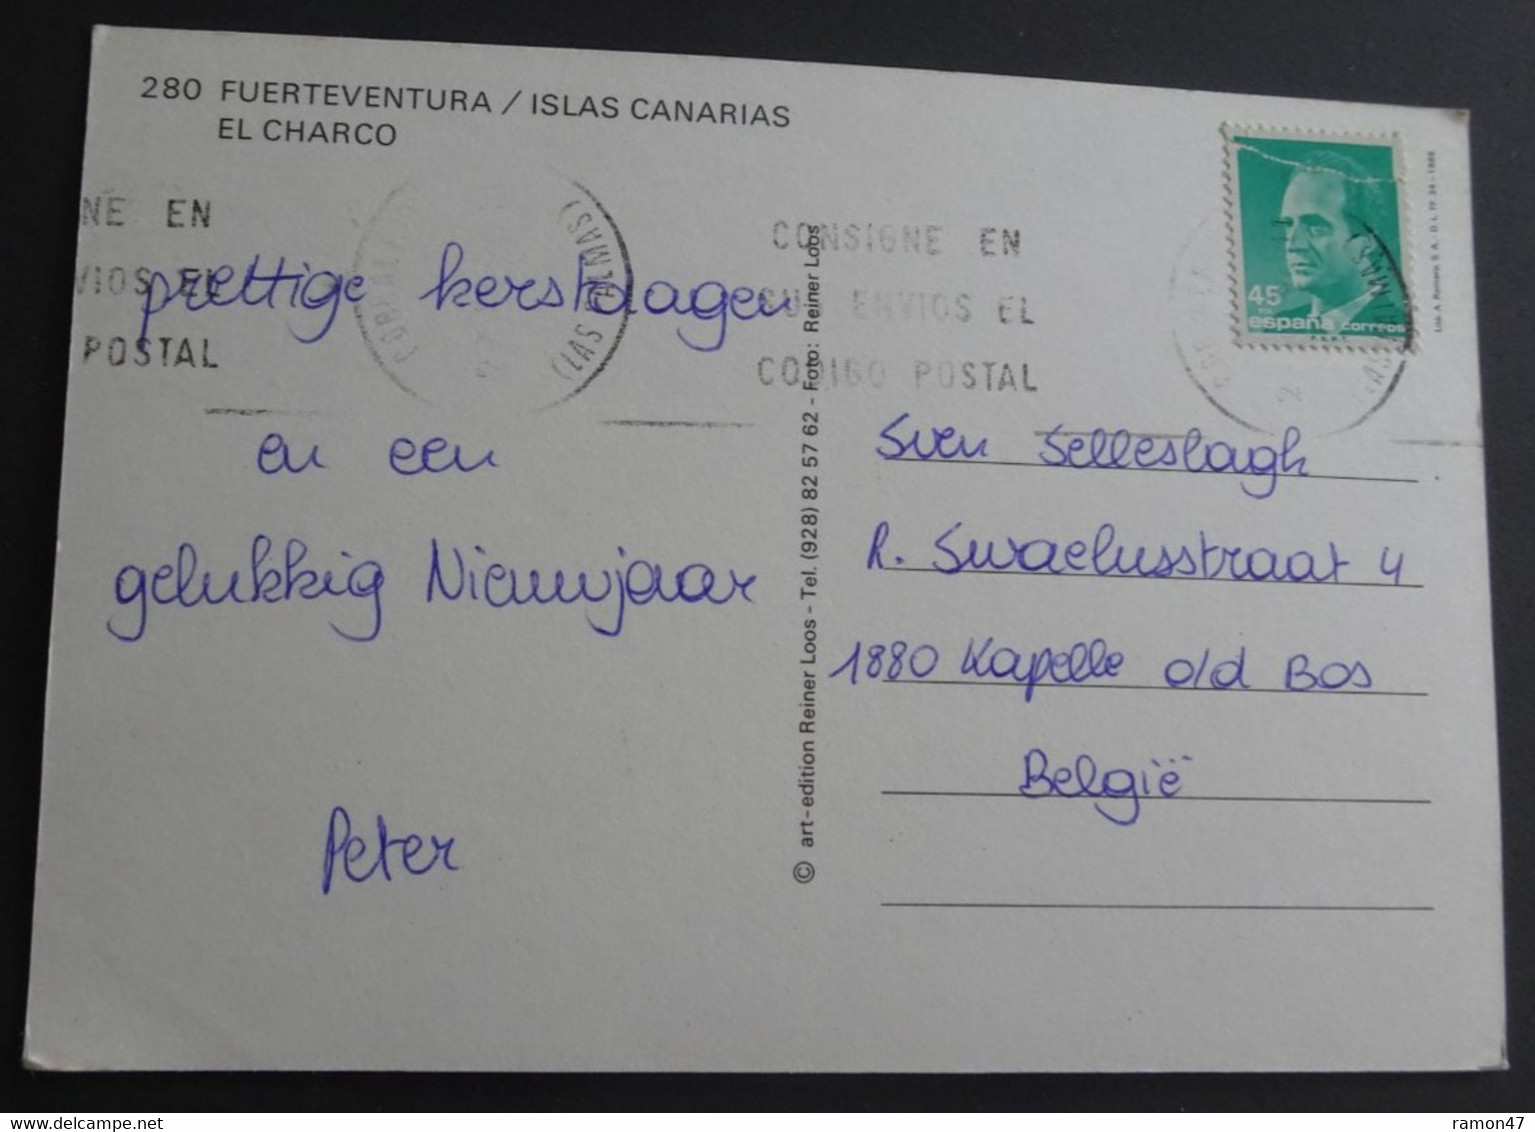 280 FUERTEVENTURA / ISLAS CANARIAS
EL CHARCO
NE EN
VIOS EL
POSTAL
(LAS PALMAS)
CONSIGNE EN
SUS ENVIOS EL
CODIGO POSTAL
45
españa correos
(LAS PALMAS)
prettige kerstdagen
en een
gelukkig Nieuwjaar
Peter
© art-edition Reiner Loos - Tel. (928) 82 57 62 - Foto: Reiner Loos
Sven Selleslagh
R. Swaelusstraat 4
1880 Kapelle o/d Bos
België
delcampe.net
ramon47